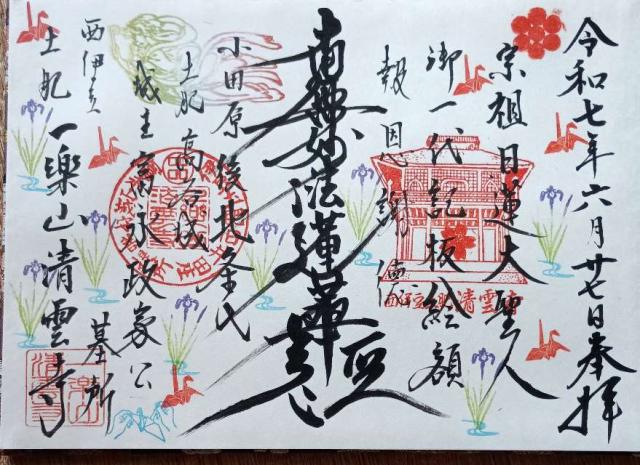 令和七年六月廿七日奉拝
宗祖日蓮大聖人
御一代記板絵額
報恩謝
南無妙法蓮華経
小田原後北条氏
土肥高谷城
城主富永政家公
墓所
西伊豆
土肥
一樂山清雲寺